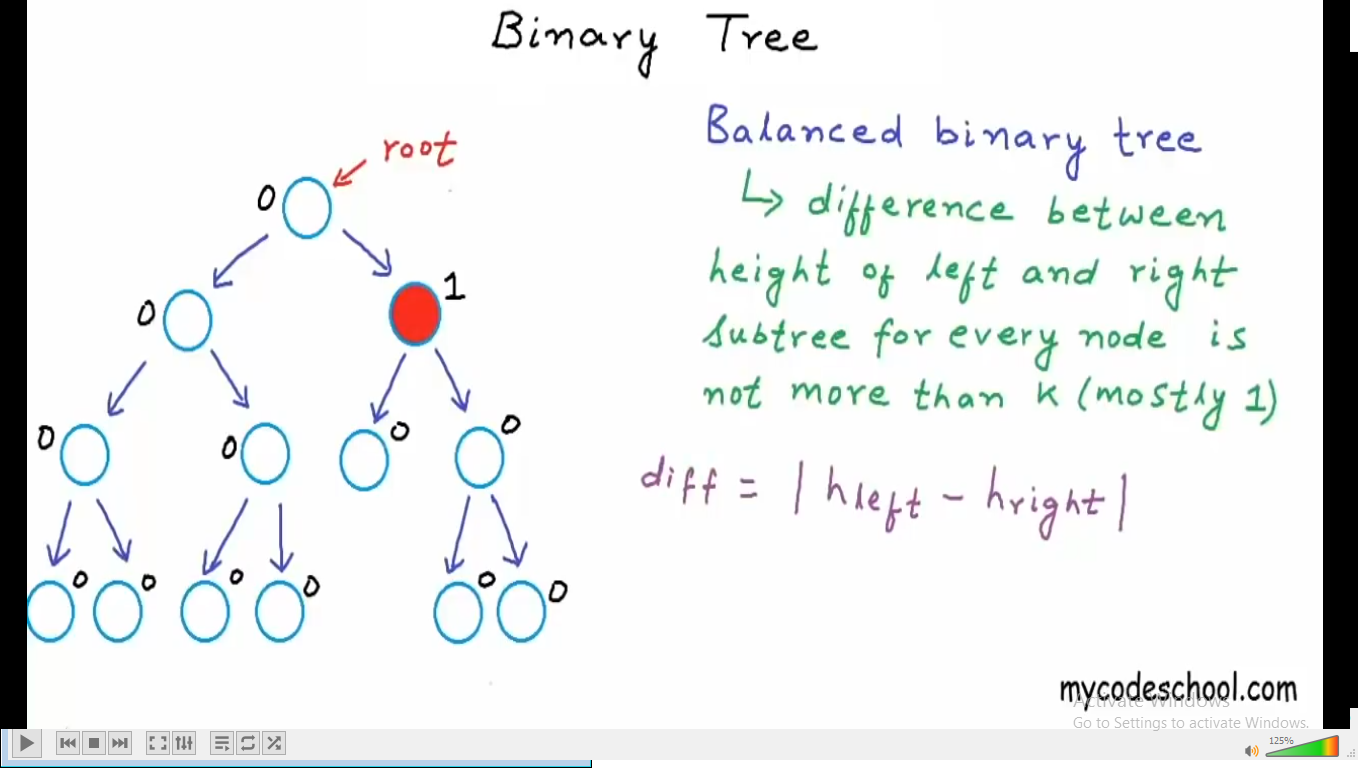 Binary Tree
root
0
0
1
0
0
0
0
0
0
0
0
0
0
Balanced binary tree
↳ difference between
height of left and right
subtree for every node is
not more than k (mostly 1)
diff = | hleft - hright |
mycodeschool.com
Activate Windows
Go to Settings to activate Windows.
125%